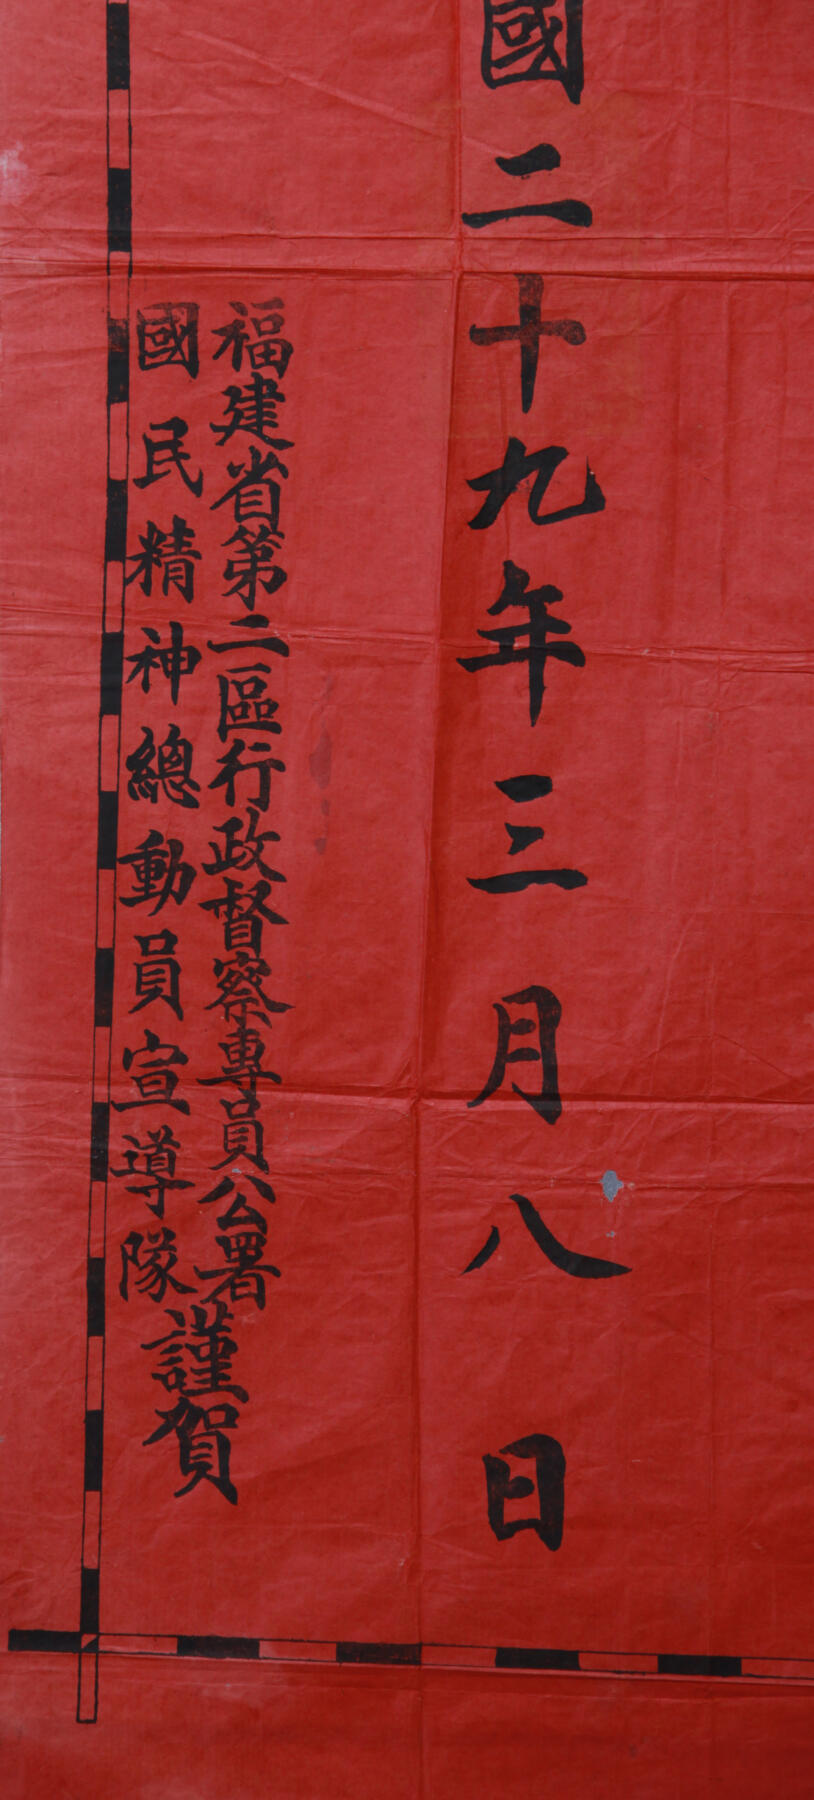 國二十九年三月八日
福建省第二區行政督察專員公署
國民精神總動員宣導隊
謹賀